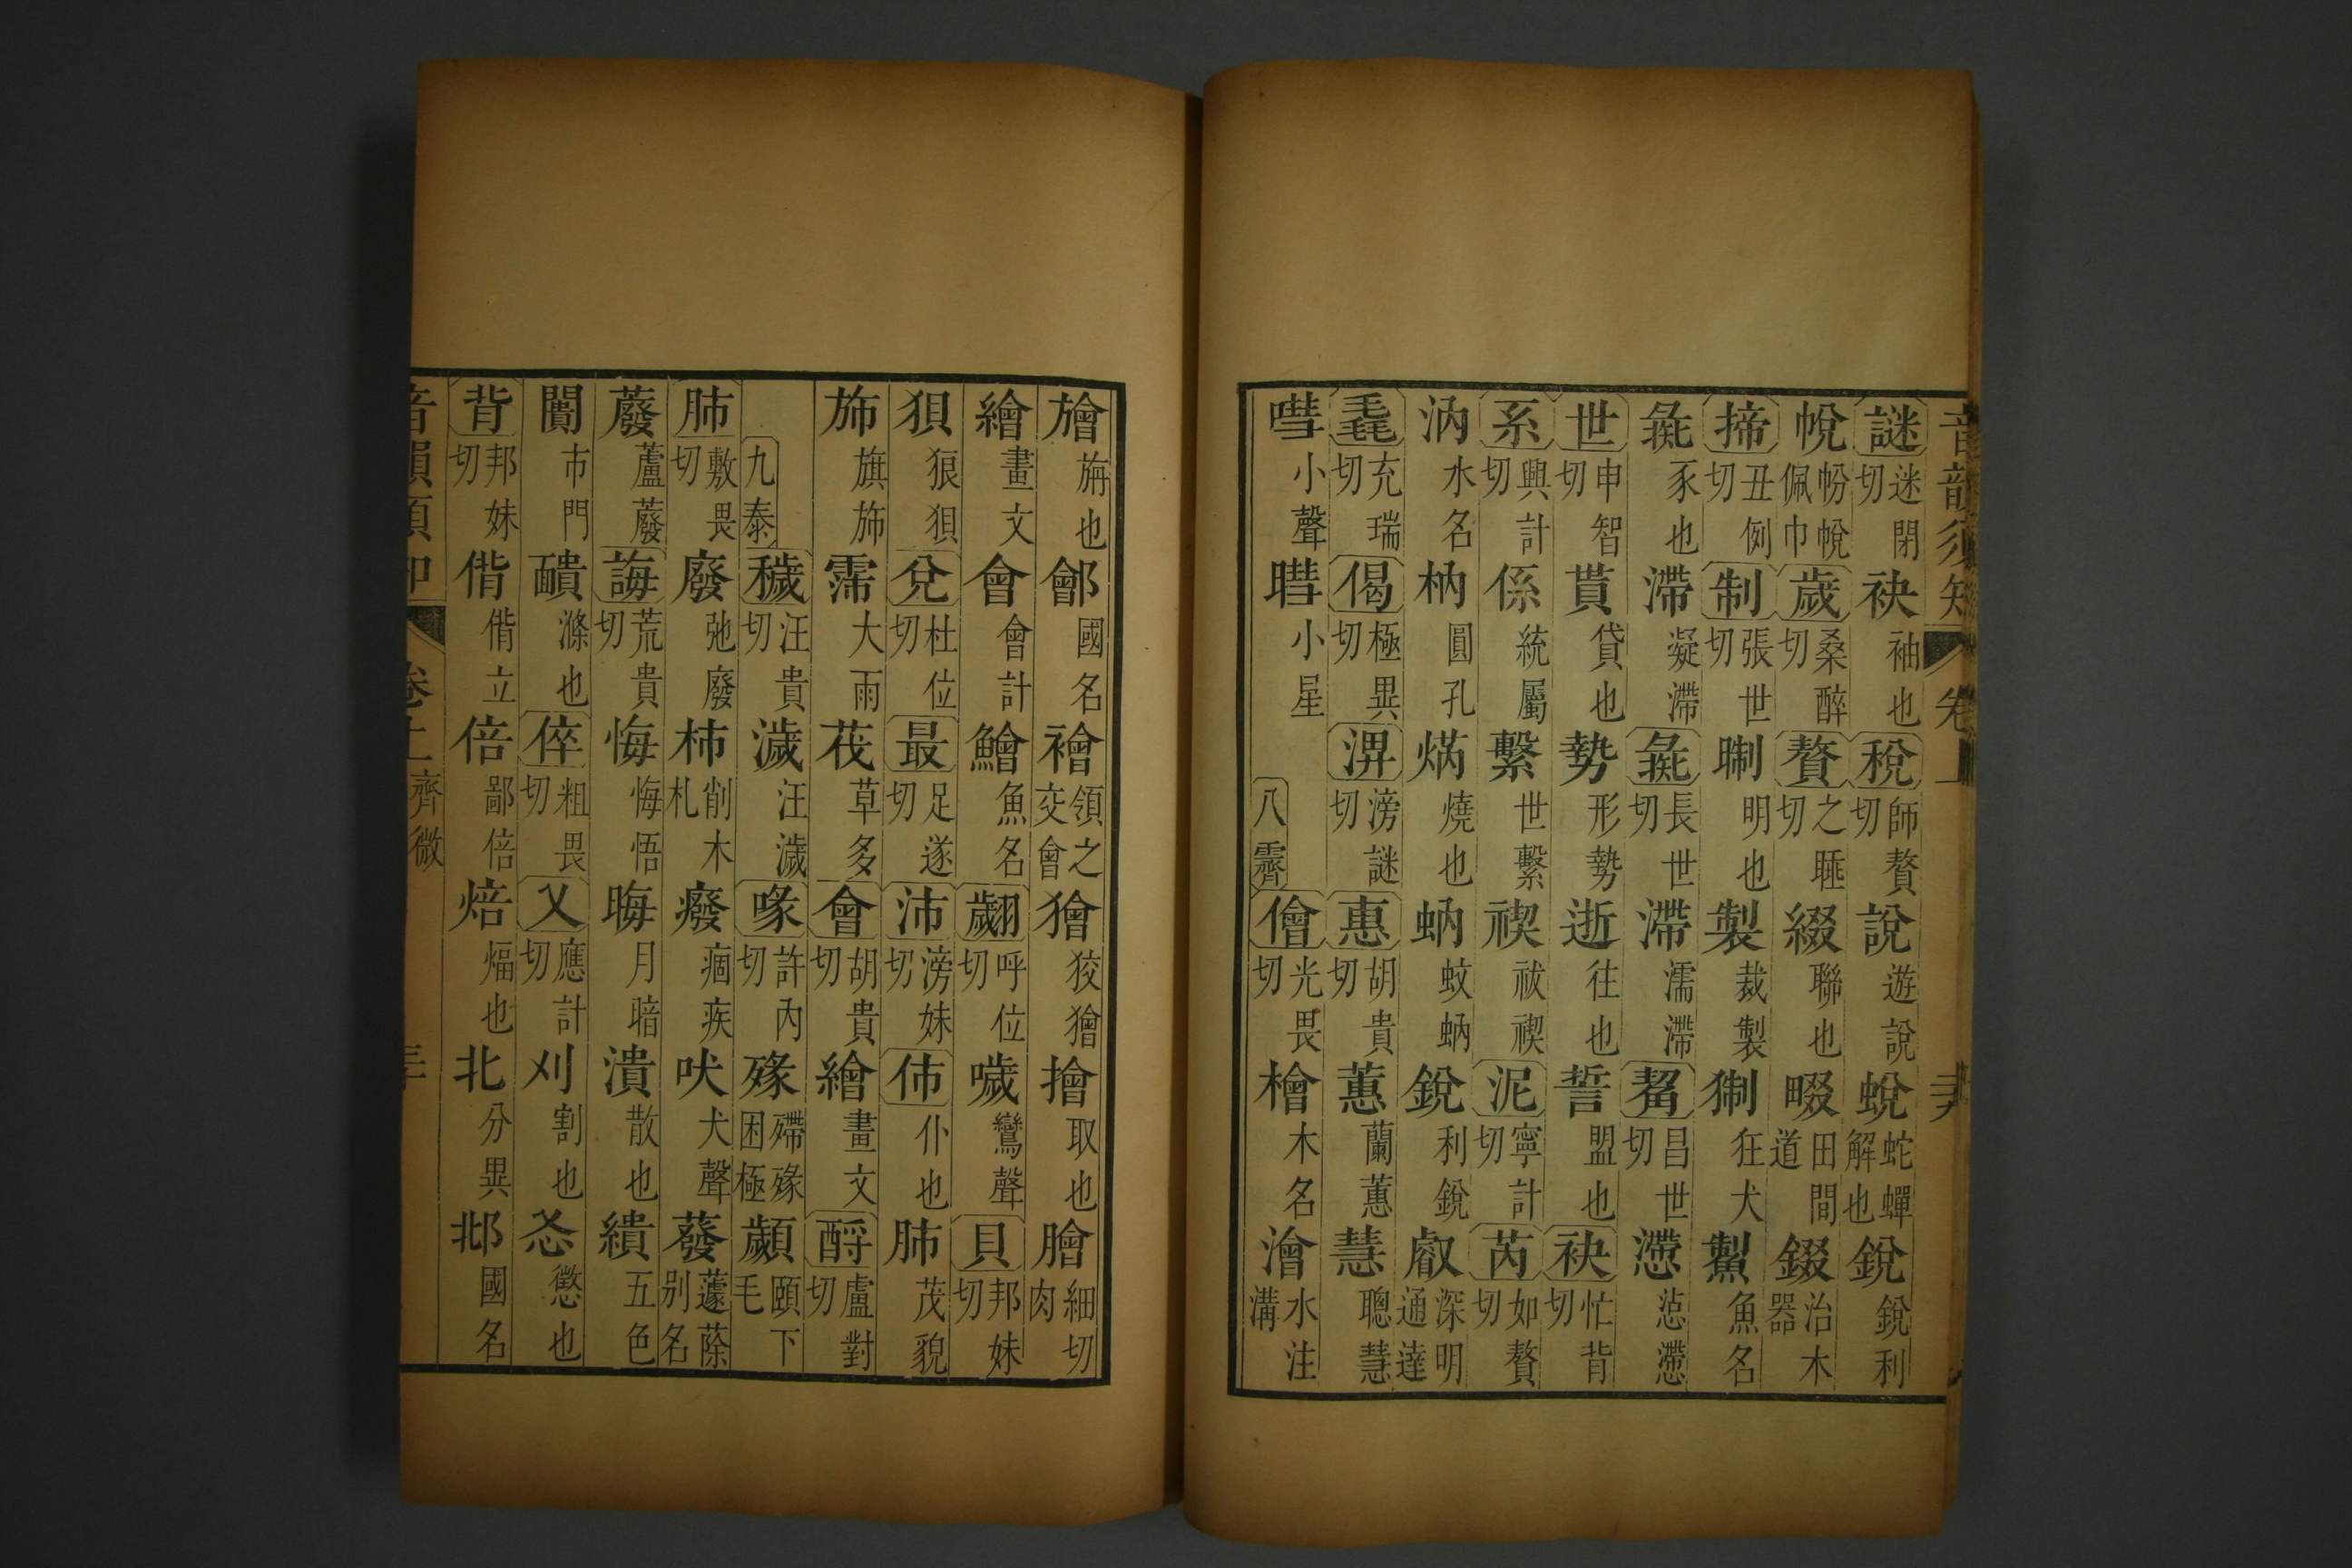 音韻須知 卷上
謎迷閉切袂袖也稅師贅切說遊說蛻蛇蟬解也銳銳利
帨帉帨佩巾歲桑醉切贅之睡切綴聯也畷田間道錣治木器
揥丑例切制張世切晣明也製裁製猘狂犬鯯魚名
彘豕也滯凝滯彘長世切滯濡滯觢昌世切懘惉懘
世申智切貰貸也勢形勢逝往也誓盟也袂忙背切
系興計切係統屬繫世繫禊祓禊泥寧計切芮如贅切
汭水名枘圓孔焫燒也蚋蚊蚋銳利銳叡深明通達
毳充瑞切偈極異切淠滂謎切惠胡貴切蕙蘭蕙慧聰慧
嘒小聲暳小星八霽儈光畏切檜木名澮水注溝
旝旃也鄶國名襘領之交會獪狡獪擓取也膾細切肉
繪畫文會會計鱠魚名翽呼位切噦鸞聲貝邦妹切
狽狼狽兌杜位切最足遂切沛滂妹切伂仆也肺茂貌
斾旗斾霈大雨茷草多會胡貴切繪畫文酹盧對切
九泰穢汪貴切濊汪濊喙許內切㱵殢㱵困極顪頤下毛
肺敷畏切廢弛廢柿削木札癈痼疾吠犬聲蕟蘧蒢別名
蕟蘆蕟誨荒貴切悔悔悟晦月暗潰散也繢五色
闠市門靧滌也倅粗畏切乂應計切刈割也忞懲也
背邦妹切偝偝立倍鄙倍焙煏也北分異邶國名
卷上 齊微